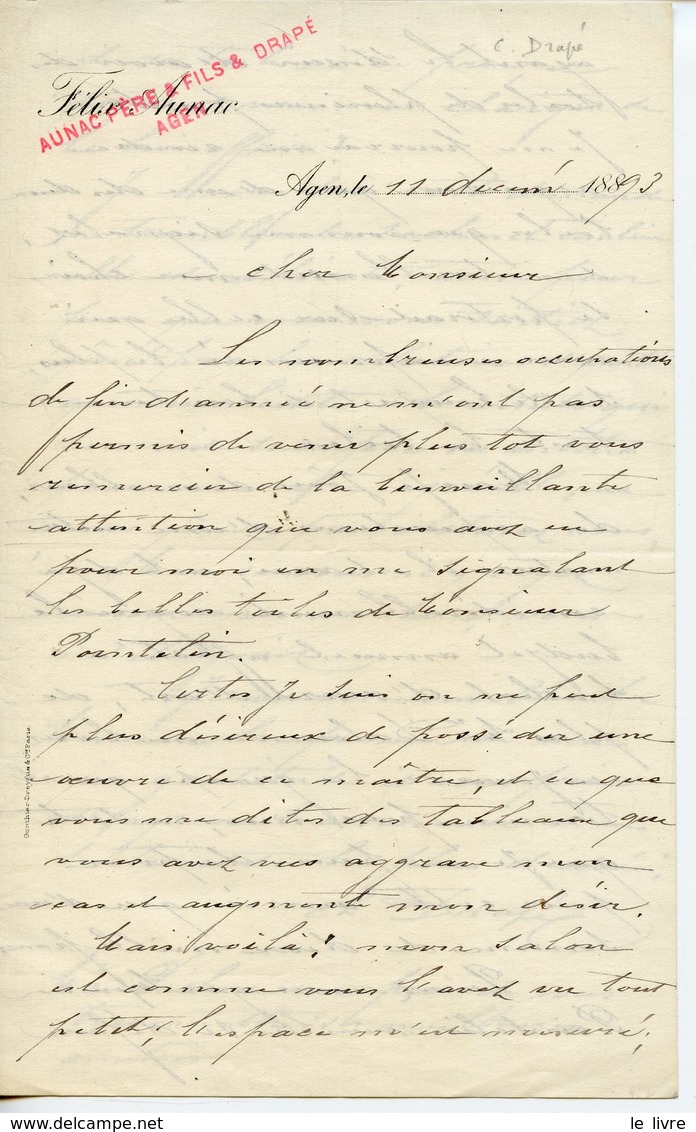 C. Drapé
Félix Aunac
AUNAC PÈRE & FILS & DRAPÉ
AGEN
Agen, le 11 decem 1893
Cher Monsieur
Les nombreuses occupations
de fin d'année ne m'ont pas
permis de venir plus tot vous
remercier de la bienveillante
attention que vous avez eu
pour moi en me signalant
les belles toiles de Monsieur
Pointelin.
Certes je suis on ne peut
plus désireux de posséder une
œuvre de ce maître, et ce que
vous me dites des tableaux que
vous avez vus aggrave mon
cas et augmente mon désir.
Mais voilà! mon salon
est comme vous l'avez vu tout
petit, l'espace m'est mesuré;
Gonthier-Dreyfus & Cie Paris
le livre